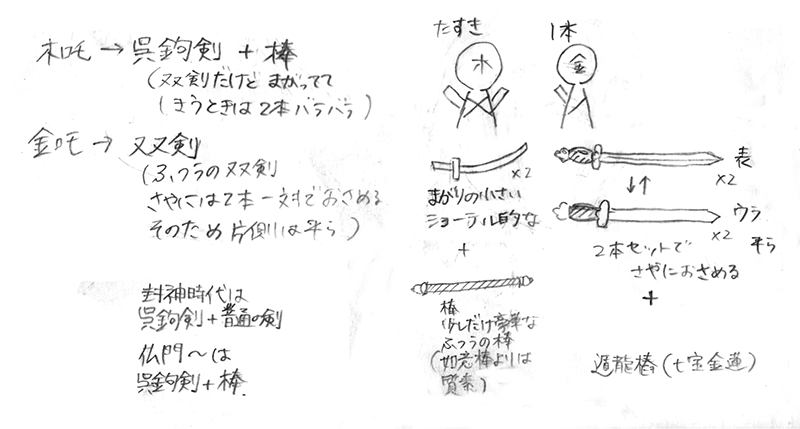 木吒→呉鉤剣+棒
(双剣だけど まがってて
(きうときは2本バラバラ)
金吒→双剣
(ふつうの双剣
さやには2本一対でおさめる
そのため片側は平ら)
封神時代は
呉鉤剣+普通の剣
仏門〜は
呉鉤剣+棒
たすき
木
×2
まがりの小さい
ショーテル的な
+
棒
少しだけ豪華な
ふつうの棒
(如意棒よりは
質素)
1本
金
表
×2
↓↑
ウラ
×2
平ら
2本セットで
さやにおさめる
+
遁龍棒(七宝金蓮)